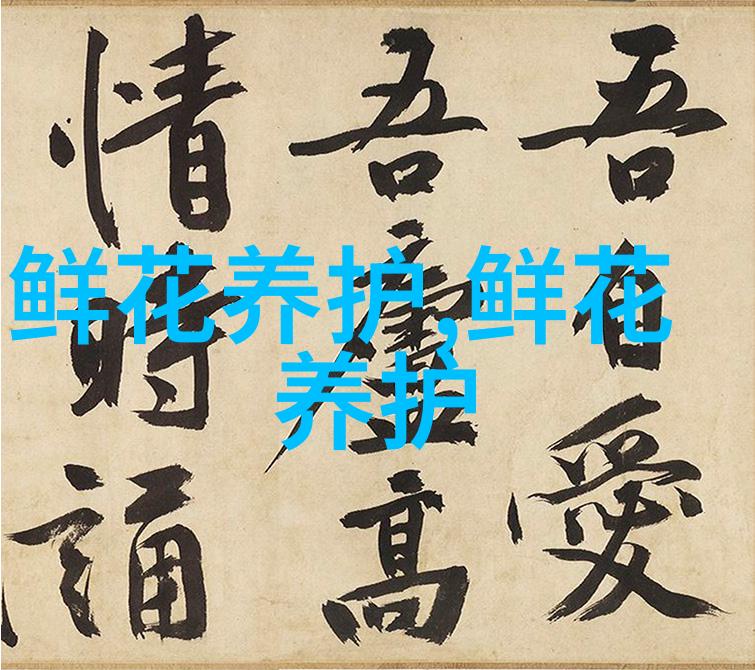 鲜花养护,鲜花
养护
吾自愛
吾廬高
情時誦